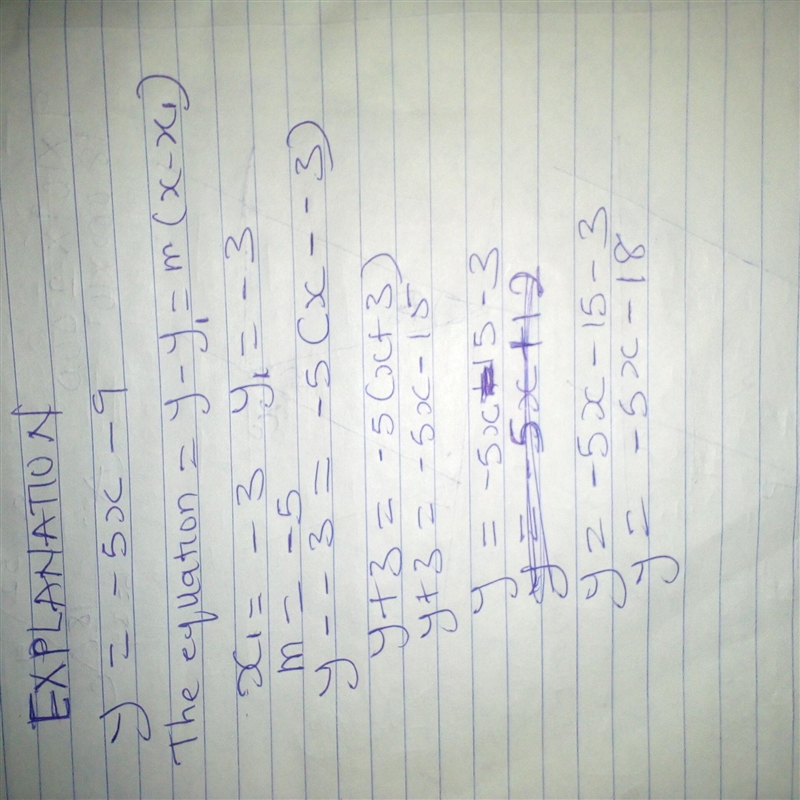 EXPLANATION
y = -5x - 9
The equation = y - y₁ = m(x - x₁)
x₁ = -3 y₁ = -3
m = -5
y - - 3 = -5(x - - 3)
y + 3 = -5(x + 3)
y + 3 = -5x - 15
y = -5x - 15 - 3
y = -5x + 12
y = -5x - 15 - 3
y = -5x - 18